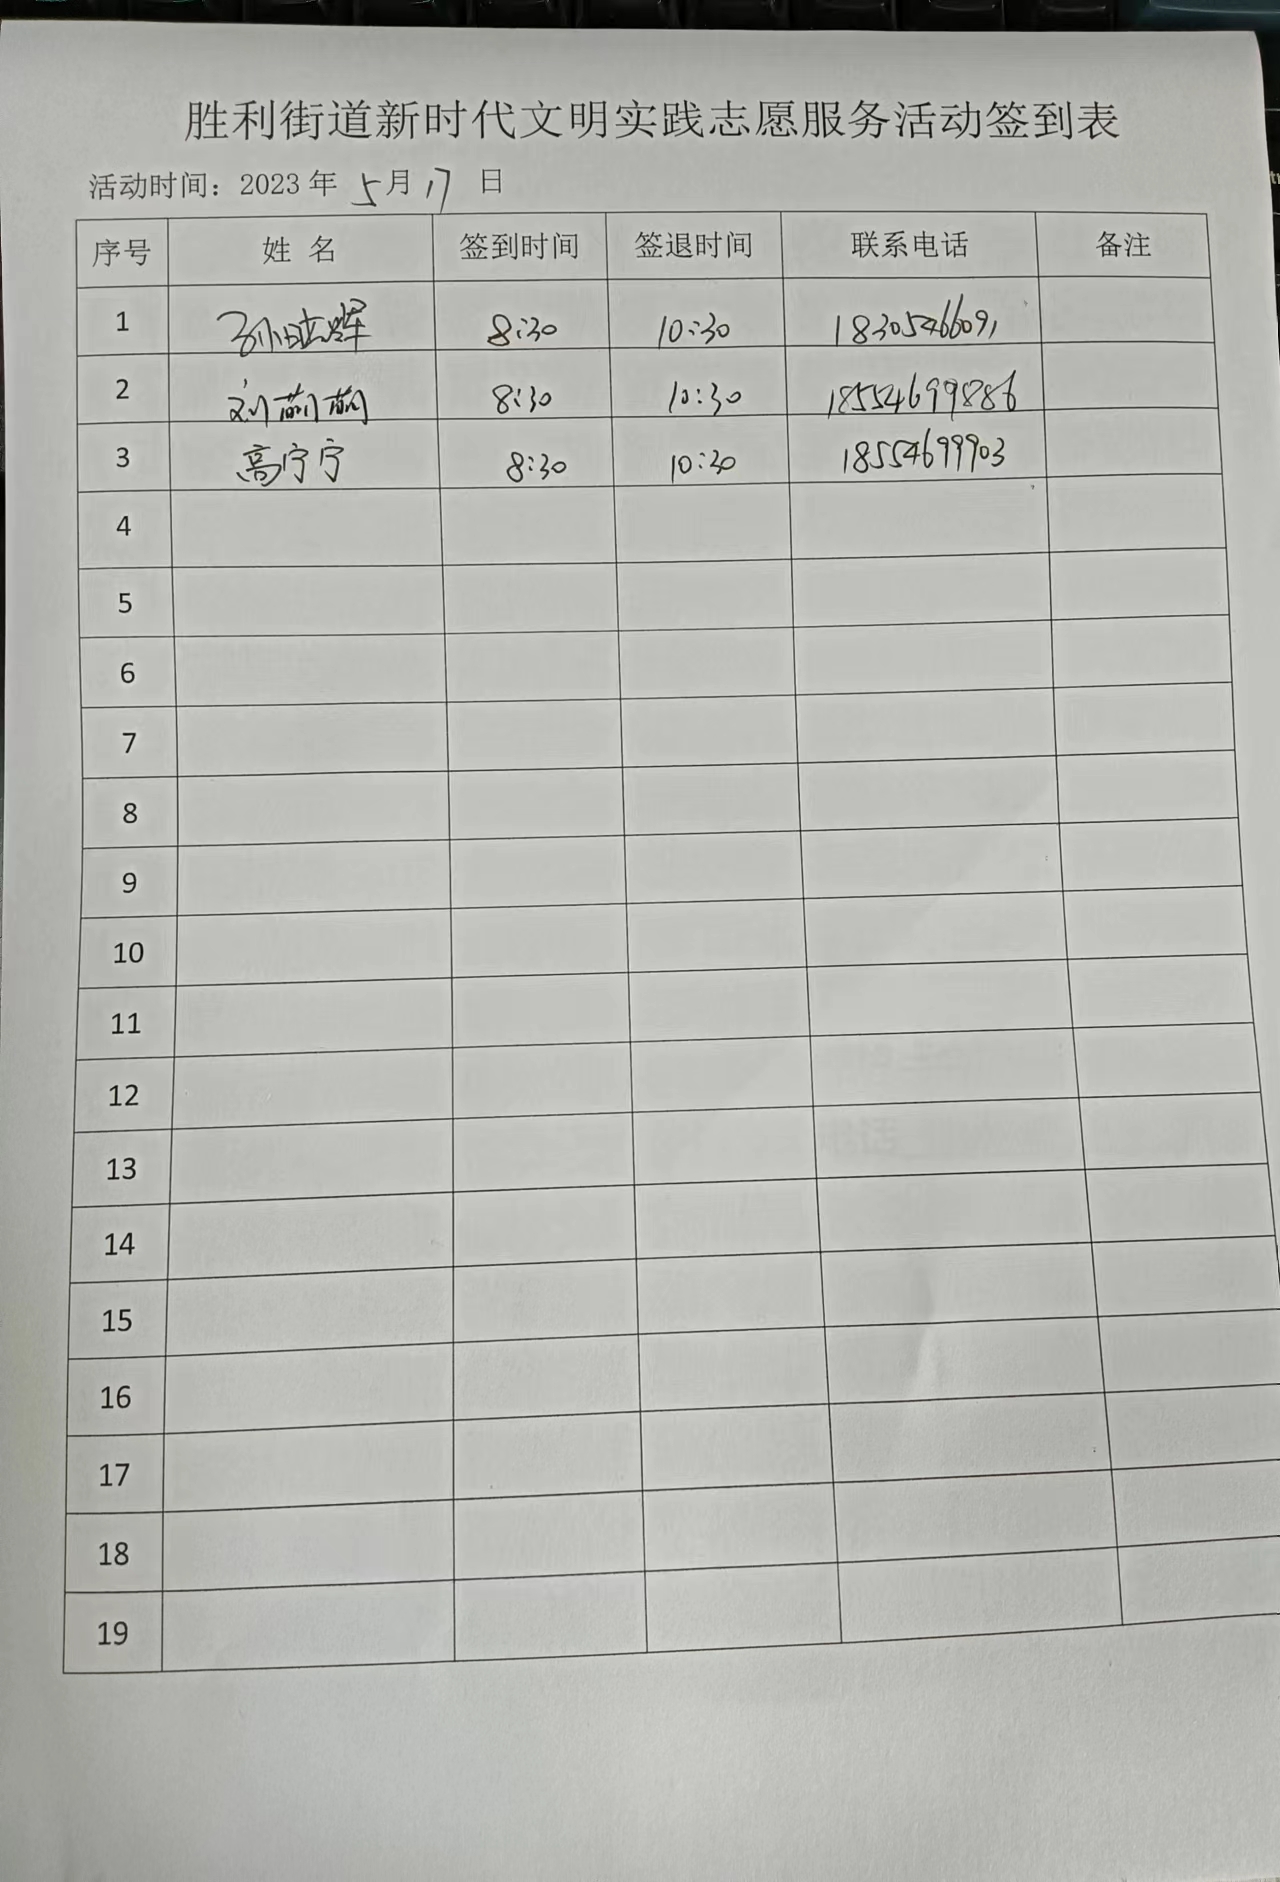 胜利街道新时代文明实践志愿服务活动签到表
活动时间：2023 年 5 月 17 日
序号 姓 名 签到时间 签退时间 联系电话 备注
1 8:30 10:30 18305466091
2 刘萌萌 8:30 10:30 18554699886
3 高宁宁 8:30 10:30 18554699903
4
5
6
7
8
9
10
11
12
13
14
15
16
17
18
19